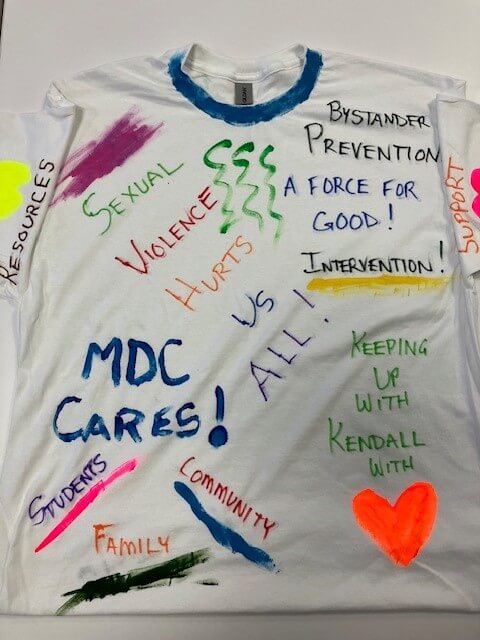 RESOURCES
SEXUAL
VIOLENCE
HURTS
US
ALL!
BYSTANDER
PREVENTION
A FORCE FOR
GOOD!
INTERVENTION!
SUPPORT
MDC
CARES!
KEEPING
UP
WITH
KENDALL
WITH
STUDENTS
COMMUNITY
FAMILY